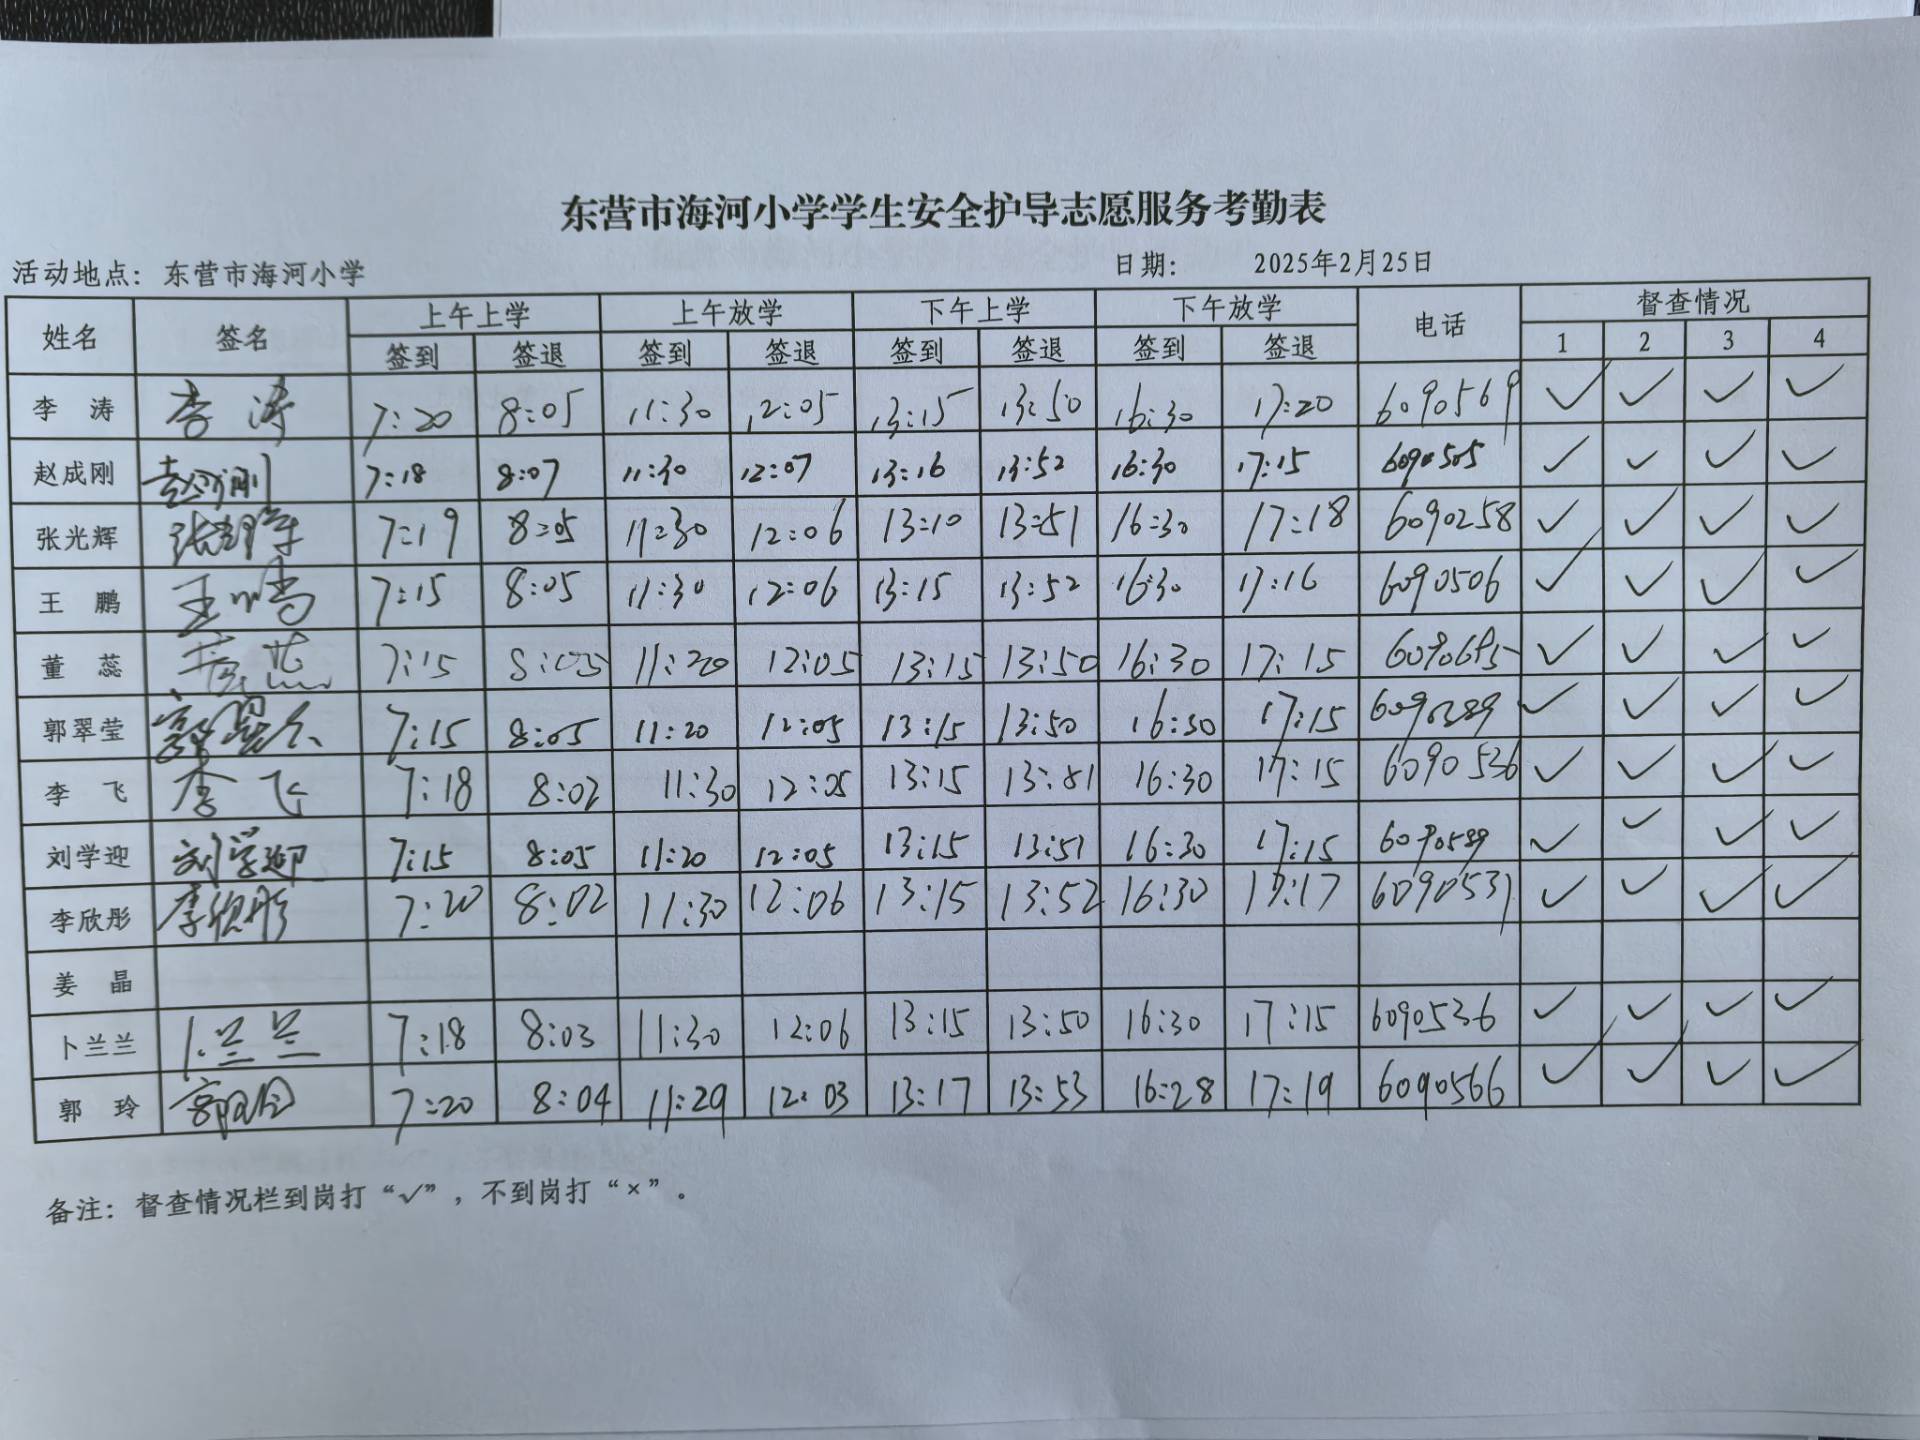 东营市海河小学学生安全护导志愿服务考勤表
活动地点： 东营市海河小学 日期： 2025年2月25日
姓名 签名 上午上学 上午放学 下午上学 下午放学 电话 督查情况
签到 签退 签到 签退 签到 签退 签到 签退 1 2 3 4
李 涛 李涛 7:20 8:05 11:30 12:05 13:15 13:50 16:30 17:20 6090569 ✓ ✓ ✓ ✓
赵成刚 赵成刚 7:18 8:07 11:30 12:07 13:16 13:52 16:30 17:15 6090505 ✓ ✓ ✓ ✓
张光辉 张光辉 7:19 8:05 11:30 12:06 13:10 13:51 16:30 17:18 6090258 ✓ ✓ ✓ ✓
王 鹏 王鹏 7:15 8:05 11:30 12:06 13:15 13:52 16:30 17:16 6090506 ✓ ✓ ✓ ✓
董 蕊 董蕊 7:15 8:05 11:20 12:05 13:15 13:50 16:30 17:15 ✓ ✓ ✓ ✓
郭翠莹 郭翠莹 7:15 8:05 11:20 12:05 13:15 13:50 16:30 17:15 ✓ ✓ ✓ ✓
李 飞 李飞 7:18 8:02 11:30 12:05 13:15 13:51 16:30 17:15 6090536 ✓ ✓ ✓ ✓
刘学迎 刘学迎 7:15 8:05 11:20 12:05 13:15 13:51 16:30 17:15 6090589 ✓ ✓ ✓ ✓
李欣彤 李欣彤 7:20 8:02 11:30 12:06 13:15 13:52 16:30 17:17 6090531 ✓ ✓ ✓ ✓
姜 晶
卜兰兰 卜兰兰 7:18 8:03 11:30 12:06 13:15 13:50 16:30 17:15 6090536 ✓ ✓ ✓ ✓
郭 玲 郭玲 7:20 8:04 11:29 12:03 13:17 13:53 16:28 17:19 6090566 ✓ ✓ ✓ ✓
备注：督查情况栏到岗打“✓”，不到岗打“×”。